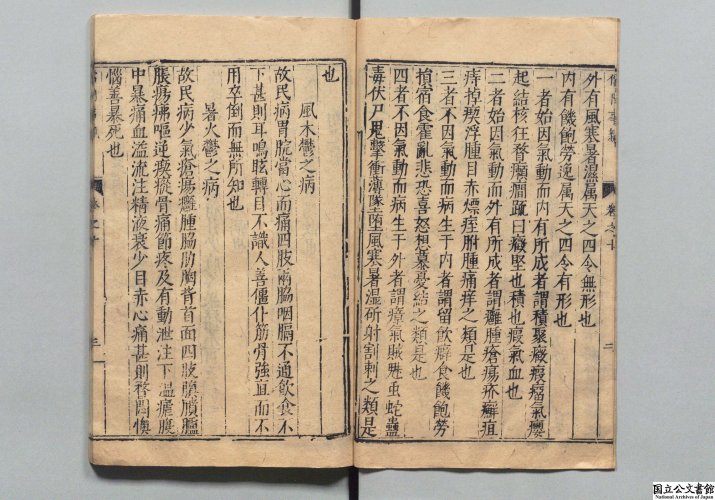 外有風寒暑濕属天之四令無形也
内有饑飽勞逸属天之四令有形也
一者始因氣動而内有所成者謂積聚癥瘕瘤氣癭
起結核狂瞀癲癇䟽曰癥堅也積也瘕氣血也
二者始因氣動而外有所成者謂癰腫瘡瘍疥癬疽
痔掉瘈浮腫目赤熛疰胕腫痛痒之類是也
三者不因氣動而病生于内者謂留飲癖食饑飽勞
損宿食霍亂悲恐喜怒想慕憂結之類是也
四者不因氣動而病生于外者謂瘴氣賊魅虫蛇蠱
毒伏尸鬼擊衝薄墜堕風寒暑湿斫射割刺之類是
也
風木鬱之病
故民病胃脘當心而痛四肢兩脇咽膈不通飲食不
下甚則耳鳴眩轉目不識人善僵仆筋骨強直而不
用卒倒而無所知也
暑火鬱之病
故民病少氣瘡瘍癰腫脇肋胸背首面四肢䐜膹臚
脹瘍疿嘔逆瘈瘲骨痛節疼及有動泄注下温瘧腹
中暴痛血溢流注精液衰少目赤心痛甚則瞀悶懊
憹善暴死也
卷之十
二
三
国立公文書館
National Archives of Japan